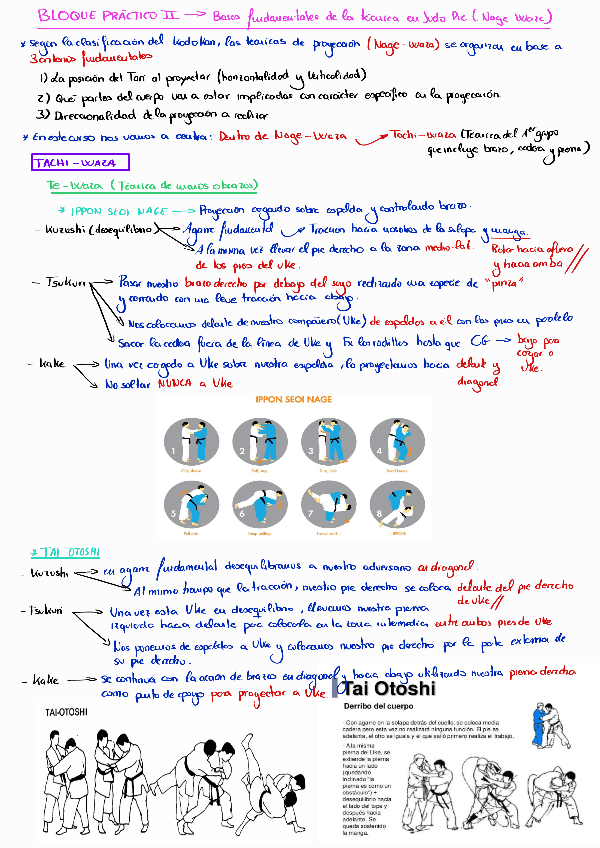 BLOQUE PRÁCTICO II → Bases fundamentales de la técnica en Judo Pie (Nage Waza)
* Según la clasificación del Kodokan, las técnicas de proyección (Nage-Waza) se organizan en base a
3 criterios fundamentales
1) La posición del Tori al proyectar (horizontalidad y verticalidad)
2) Qué partes del cuerpo van a estar implicadas con carácter específico en la proyección
3) Direccionalidad de la proyección a realizar
* En este curso nos vamos a centrar: Dentro de Nage-Waza → Tachi-Waza (Técnica del 1er grupo
que incluye brazo, cadera y pierna)
TACHI-WAZA
Te-Waza (Técnica de manos o brazos)
* IPPON SEOI NAGE → Proyección cargando sobre espalda y controlando brazo.
- Kuzushi (desequilibrio) → Agarre fundamental → Tracción hacia nosotros de la solapa y manga.
A la misma vez llevar el pie derecho a la zona medio-lat. Rotar hacia afuera
de los pies del Uke. y hacia arriba //
- Tsukuri → Pasar nuestro brazo derecho por debajo del suyo realizando una especie de "pinza"
y cerrando con una leve tracción hacia abajo.
Nos colocamos delante de nuestro compañero (Uke) de espaldas a él con los pies en paralelo
Sacar la cadera fuera de la línea de Uke y Fx las rodillas hasta que CG → bajo para
cargar a
Uke.
- Kake → Una vez cargado a Uke sobre nuestra espalda, lo proyectamos hacia delante y
diagonal
No soltar NUNCA a Uke
IPPON SEOI NAGE
1 2 3 4
5 6 7 8
* TAI OTOSHI
- Kuzushi → en agarre fundamental desequilibramos a nuestro adversario en diagonal.
Al mismo tiempo que la tracción, nuestro pie derecho se coloca delante del pie derecho
de Uke //
- Tsukuri → Una vez esta Uke en desequilibrio, llevamos nuestra pierna
izquierda hacia delante para colocarla en la zona intermedia entre ambos pies de Uke
Nos ponemos de espaldas a Uke y colocamos nuestro pie derecho por la parte externa de
su pie derecho.
- Kake → Se continua con la acción de brazos en diagonal y hacia abajo utilizando nuestra pierna derecha
como punto de apoyo para proyectar a Uke.
TAI-OTOSHI
Tai Otoshi
Derribo del cuerpo
- Con agarre en la solapa detrás del cuello, se coloca media
cadera pero esta vez no realizará ninguna función. El pie se
adelanta, el otro se iguala y el que salió primero realiza el trabajo.
- A la misma
pierna del Uke, se
extiende la pierna
hacia un lado
(quedando
inclinado "la
pierna es como un
obstáculo") +
desequilibrio hacia
el lado del tope y
después hacia
adelante. Se
queda sostenido
la manga.